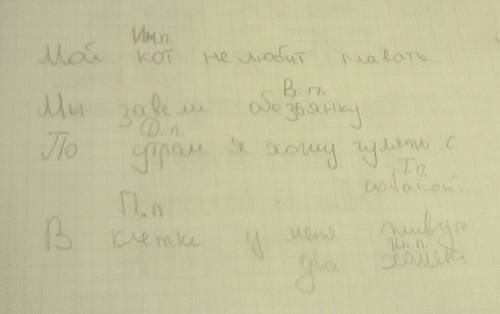 Им.п.
Мой кот не любит плавать.
В.п.
Мы завели обезьянку
Д.п
По утрам я хожу гулять с
Т.п.
собакой.
П.п
В клетке у меня живут
Им.п.
два хомяка